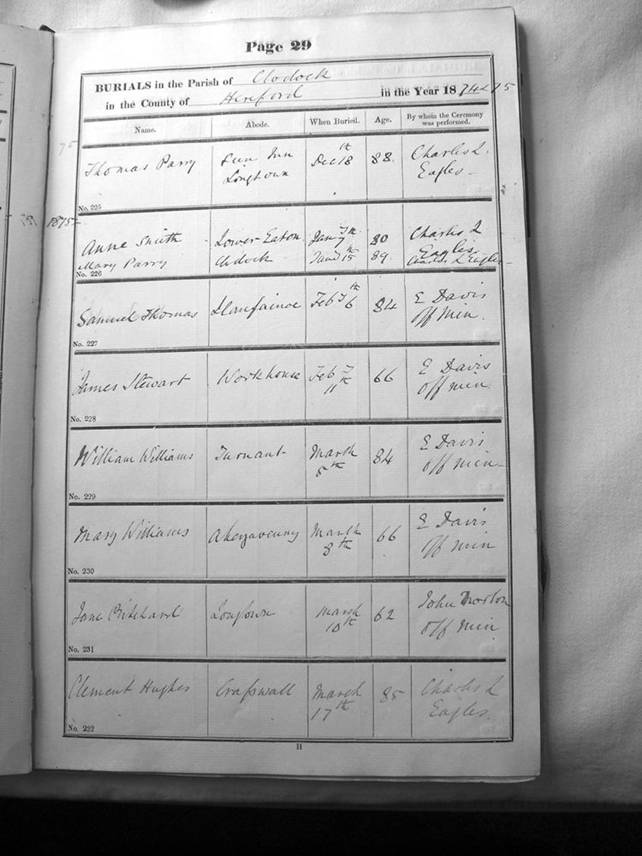 Page 29
BURIALS in the Parish of Clodock
in the County of Hereford in the Year 1874 & 75
Name. Abode. When Buried. Age. By whom the Ceremony was performed.
75
Thomas Parry Sun Inn Longtown Dec 18th 88. Charles L. Eagles
No. 225
1875
Anne Smith Lower Eaton Jany 7th 80 Charles L Eagles
Mary Parry Clodock Jany 15th 89. Charles L Eagles
No. 226
Samuel Thomas Llanfainoe Feby 6th 84 E Davis Off Min.
No. 227
James Stewart Workhouse Feby 11th 66 E Davis Off min
No. 228
William Williams Turnant March 5th 84 E Davis Off min
No. 229
Mary Williams Abergavenny March 8th 66 E Davis Off Min
No. 230
Jane Pritchard Longtown March 10th 62 John Morton Off Min
No. 231
Clement Hughes Craswall March 17th 85 Charles L Eagles.
No. 232
H